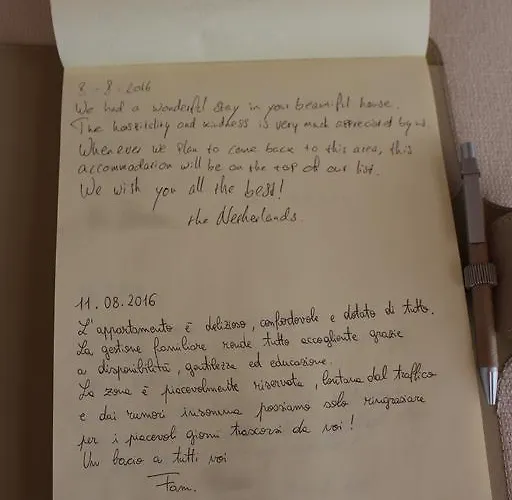 8-8-2016
We had a wonderful stay in your beautiful house.
The hospitality and kindness is very much appreciated by us.
Whenever we plan to come back to this area, this
accommodation will be on the top of our list.
We wish you all the best!
the Netherlands.
11.08.2016
L'appartamento è delizioso, confortevole e dotato di tutto.
La gestione familiare rende tutto accogliente grazie
a disponibilità, gentilezza ed educazione.
La zona è piacevolmente riservata, lontana dal traffico
e dai rumori insomma possiamo solo ringraziare
per i piacevoli giorni trascorsi da voi!
Un bacio a tutti voi
Fam.